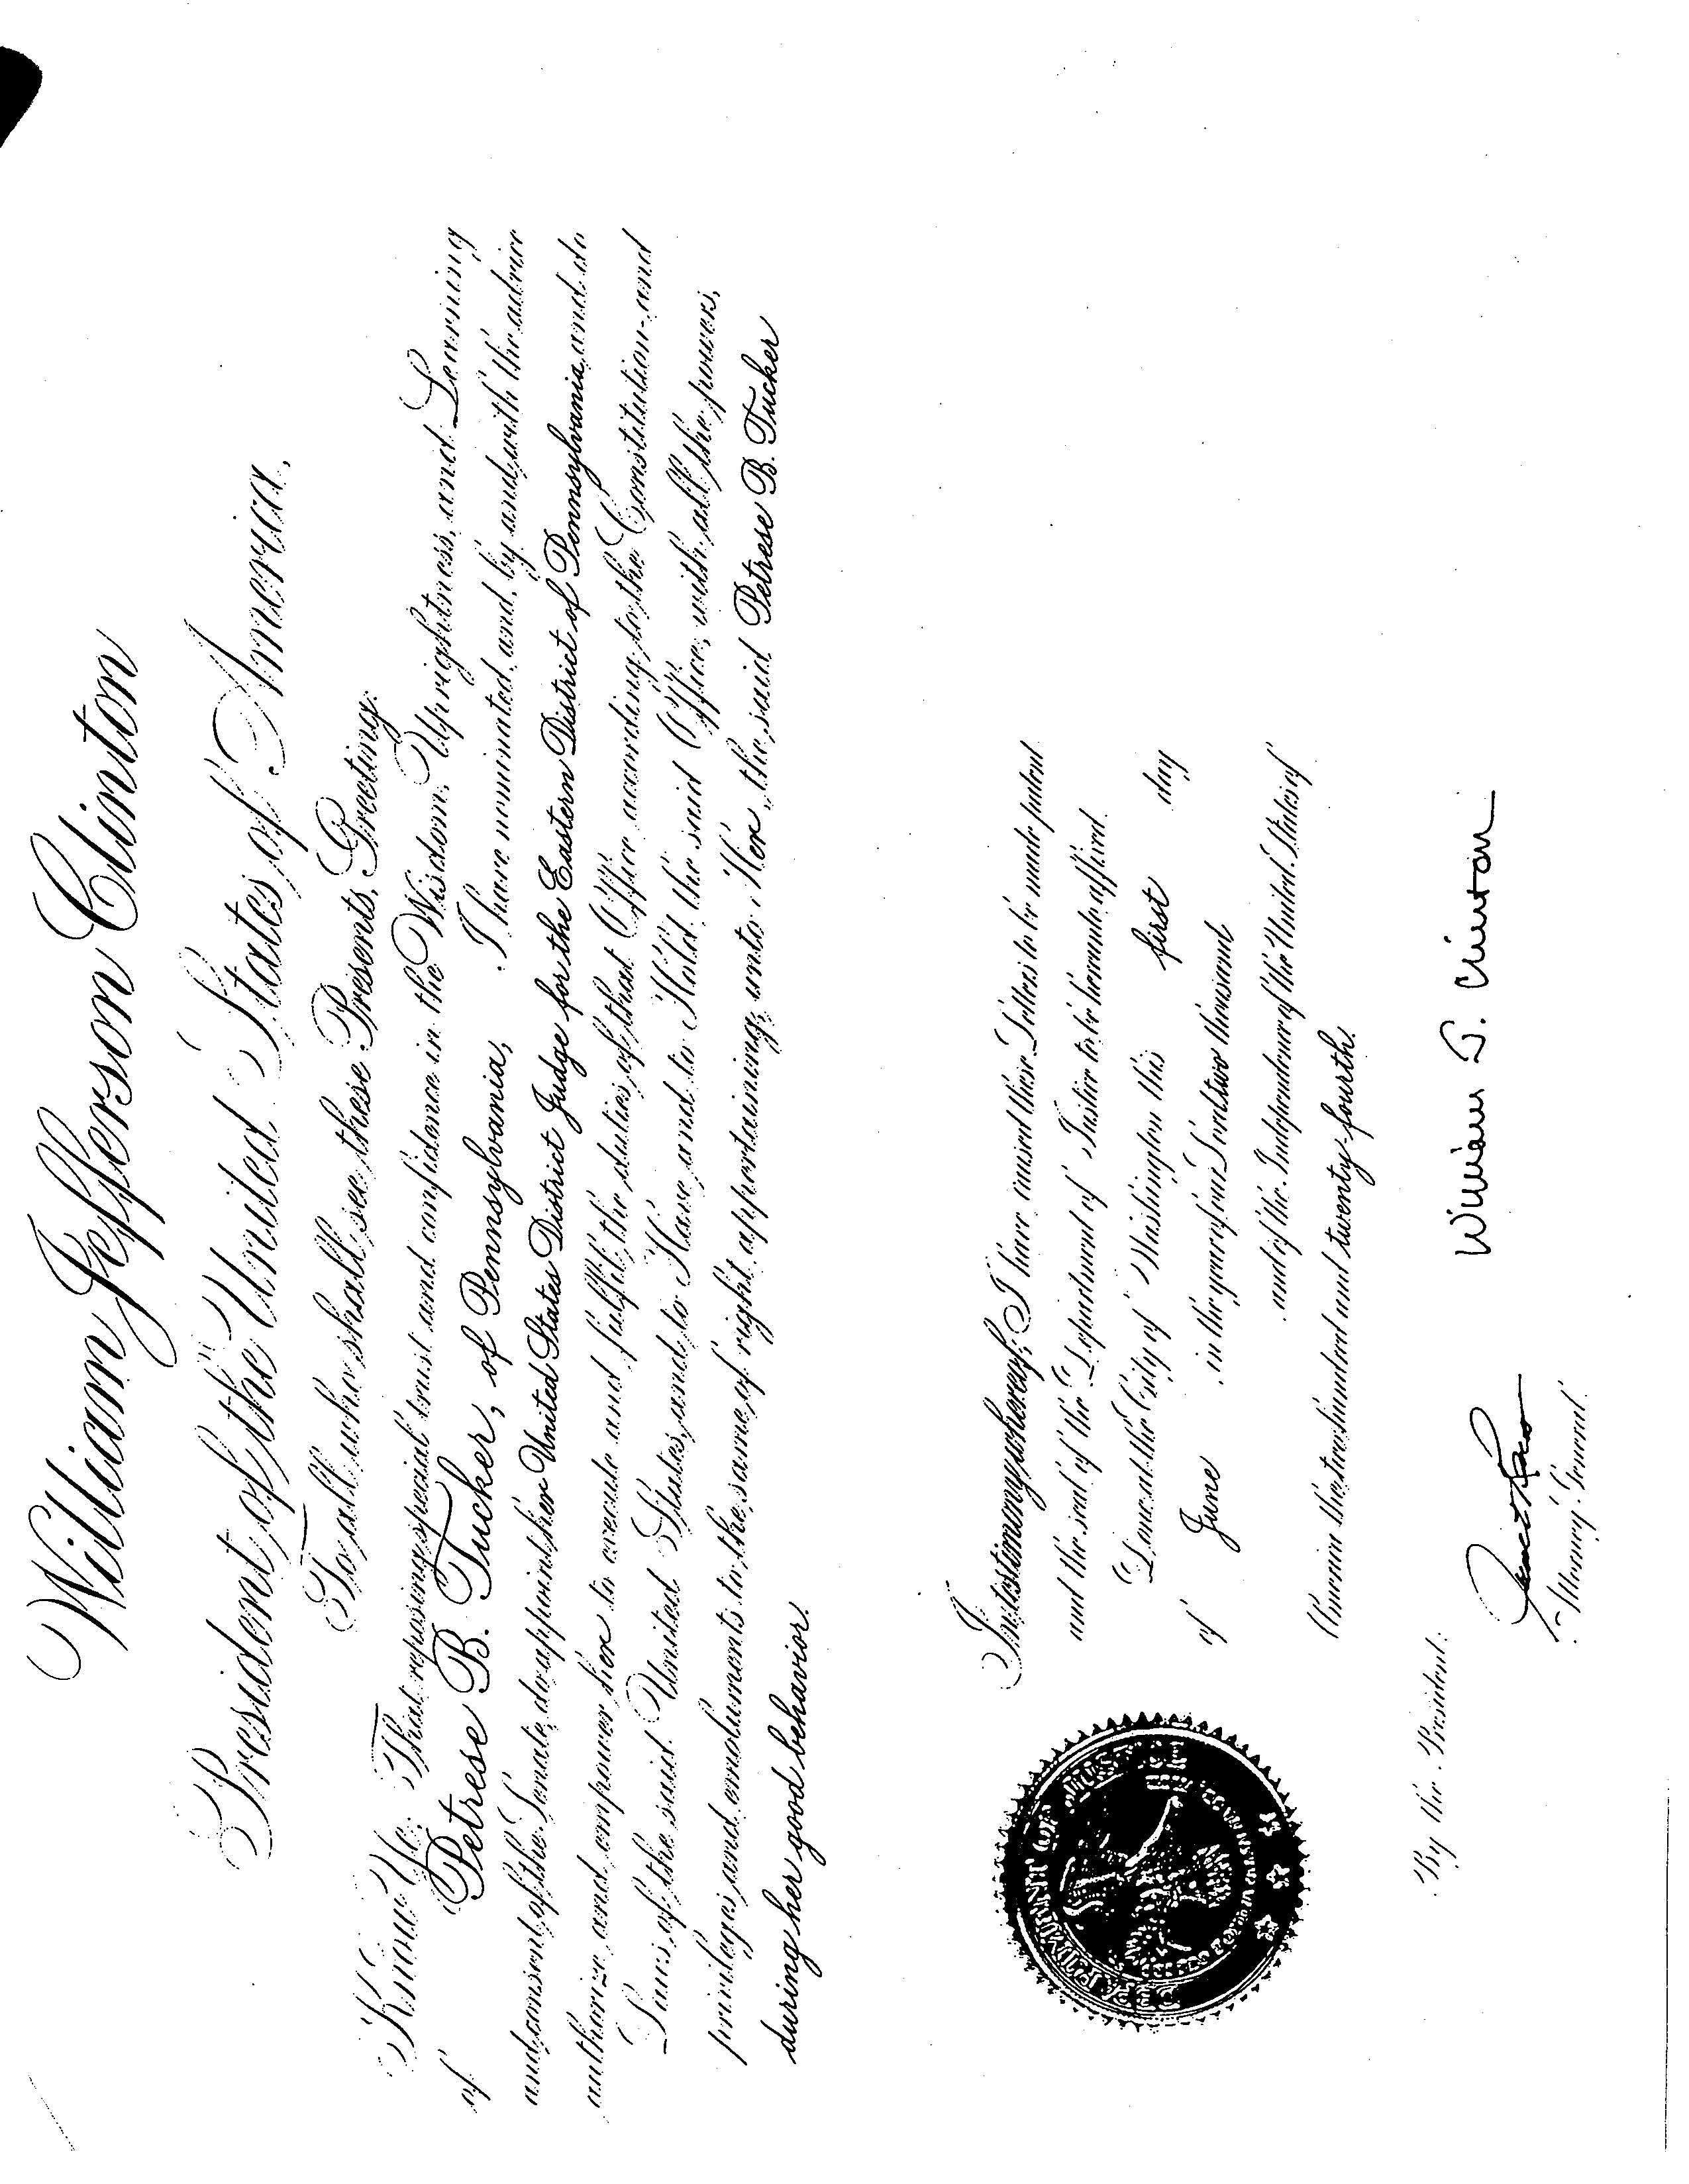 William Jefferson Clinton
President of the United States of America,
To all who shall see these Presents, Greeting:
Know Ye; That reposing special trust and confidence in the Wisdom, Uprightness, and Learning
of Petrese B. Tucker, of Pennsylvania, I have nominated, and, by and with the advice
and consent of the Senate, do appoint her United States District Judge for the Eastern District of Pennsylvania, and do
authorize and empower her to execute and fulfil the duties of that Office according to the Constitution and
Laws of the said United States, and to Have and to Hold the said Office, with all the powers,
privileges, and emoluments to the same of right appertaining, unto Her, the said Petrese B. Tucker
during her good behavior.
In testimony whereof, I have caused these Letters to be made patent
and the seal of the Department of Justice to be hereunto affixed.
Done at the City of Washington this first day
of June in the year of our Lord two thousand
and of the Independence of the United States of
America the two hundred and twenty-fourth.
DEPARTMENT OF JUSTICE
William J. Clinton
By the President:
Janet Reno
Attorney General.